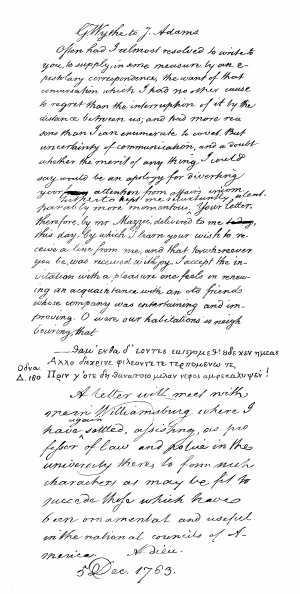 G Wythe to J. Adams
Often had I almost resolved to write to
you, to supply, in some measure, by an e-
pistolary correspondence, the want of that
conversation which I had no other cause
to regret than the interruption of it by the
distance between us; and had more rea
sons than I can enumerate to covet. But
uncertainty of communication, and a doubt
whether the merit of any thing I could
say would be an apology for diverting
your attention from affairs incom
hitherto kept me reluctantly silent.
parably more momentous, Your letter,
therefore, by mr Mazzei, delivered to me
this day, by which I learn your wish to re-
ceive a line from me, and that to wherever
you be, was received with joy. I accept the in-
vitation with a pleasure one feels in renew
ing an acquaintance with an old friend
whose company was entertaining and im-
proving. O were our habitations so neigh
bouring, that
—— θαμ' ενθα δ' εοντες εμισγομεθ': ουδε κεν ημεας
Οδυσ. Αλλο διεκρινε φιλεοντε τε τερπομενω τε,
Δ. 180 Πριν γ' οτε δη θανατοιο μελαν νεφος αμφεκαλυψεν!
A letter will meet with
me in Williamsburg, where I
again
have settled, assisting, as pro
fessor of law and police in the
university there, to form such
characters as may be fit to
succede those which have
been ornamental and useful
in the national councils of A-
merica. Adieu.
5 Dec. 1783.